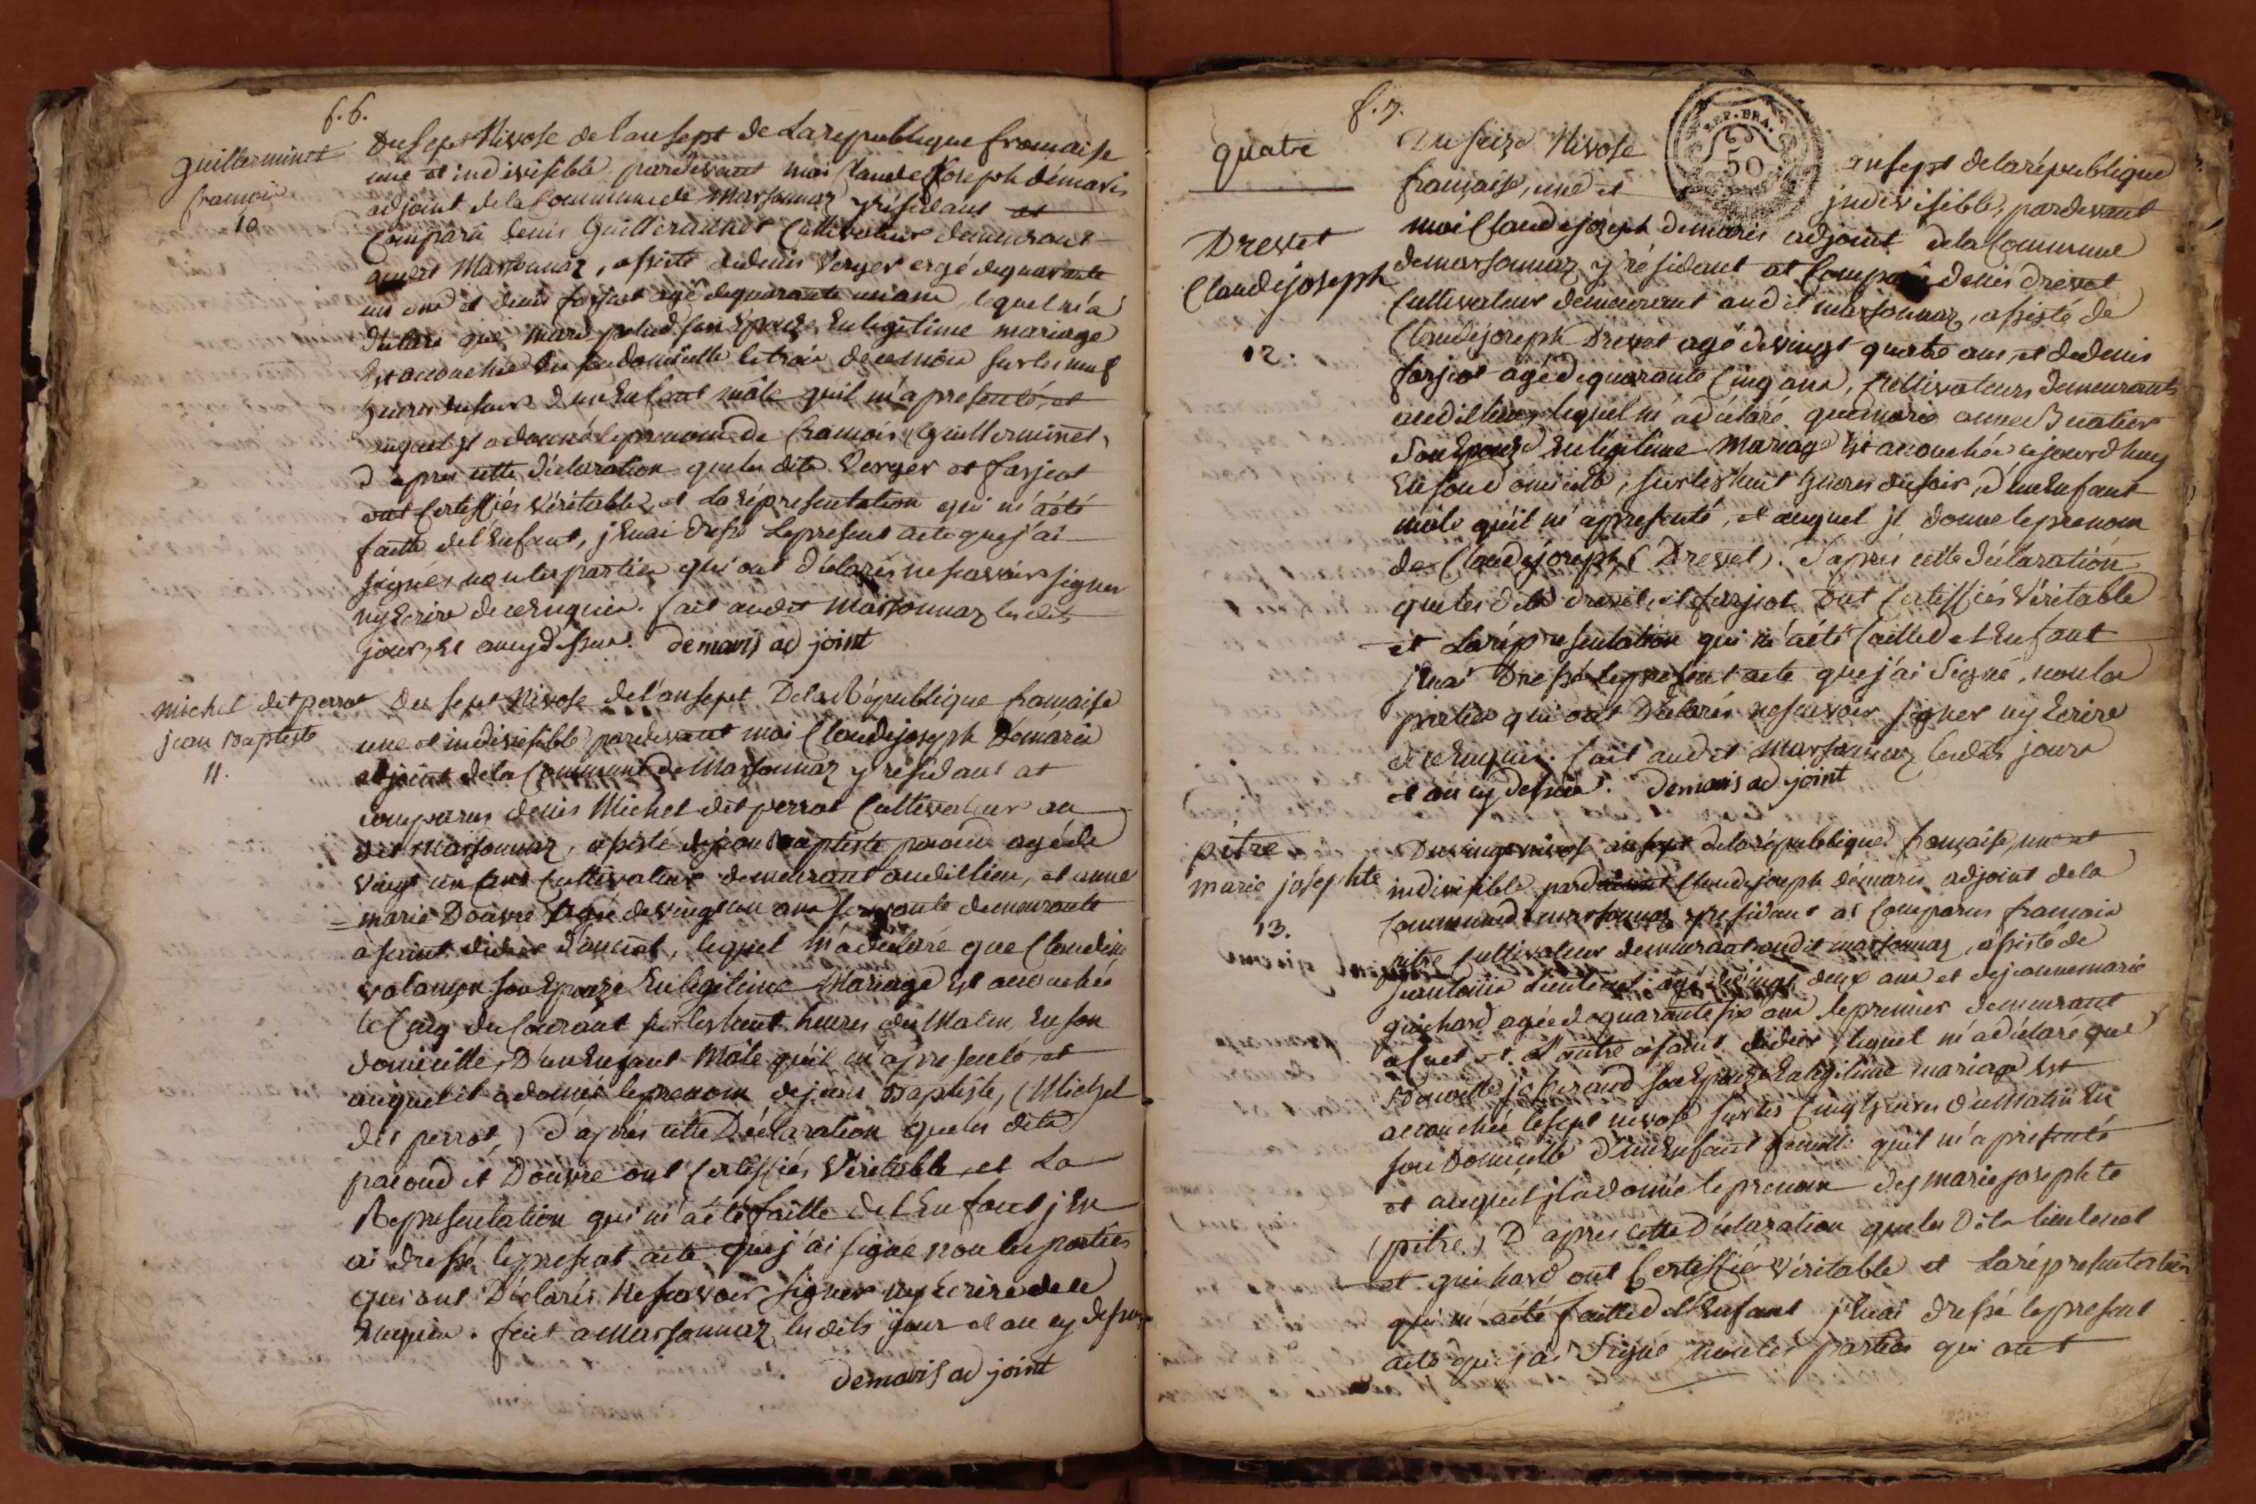 f. 6.
Guillerminet
francois
10
Du sept Nivose de l'an sept de La republique francaise
une et indivisible pardevant moi Claude Joseph démaris
adjoint de la Commune de Marsonnaz y residant at
Comparu denis Guillerminet Cultivateur demeurant
audit Marsonnaz, assisté dedenis Verger agé dequarante
un ans et denis farjeot agé dequarante un ans lequel m'a
déclaré que marie son Epouze En legitime mariage
Est accouchée En son domicille le trois du surles neuf
heures du soir D'un Enfant mâle quil m'a presenté, et
auquel il a donné le prenom de francois (Guillerminet,
D'apres cette déclaration queles dits Verger et farjeot
ont Certiffiés Véritable, et La répresentation qui m'a été
faitte del'Enfant, j'Enai dressé Le present acte que j'ai
signés non les parties qui ont déclarés ne savoir signer
ny Ecrire de ce Enquis. fait audit Marsonnaz les dits
jour, et an cy dessus. demaris ad joint
michel dit perrot
jean Baptiste
11.
Du sept Nivose del'an sept Dela République francaise
une et indivisible pardevant moi Claudejoseph Démaris
adjoint dela Commune de Marsonnaz y residant at
comparus denis Michel dit perrot Cultivateur au
dit Marsonnaz, assisté dejean Baptiste pacoud agé de
vingt un ans Cultivateur demeurant audit lieu, et anne
marie Douvre agée de vingt un ans servante demeurante
a saint didier d'aussiat, lequel m'a declaré que Claudine
son Epouze En legitime Mariage Est accouchée
le Cinq du Courant sur les huit heures du Matin En son
domicille, D'un Enfant Mâle qu'il m'a presenté, et
auquel il a donné le prenom dejean Baptiste, (Michel
dit perrot,) d'après cette Déclaration queles dits
pacoud et Douvre ont Certiffiés Véritable, et La
Representation qui m'a été faitte del'Enfant j'En
ai dressé le present acte que j'ai signé non les parties
qui ont Déclarés Ne savoir signer ny Ecrire de ce
Enquis. fait a Marsonnaz les dits jour et an cy dessus
demaris ad joint
f. 7.
quatre
REP. FRA.
50
Drevet
Claudejoseph
12.
Du seize Nivose an sept de la république
française, une et indivisible, pardevant
moi Claudejoseph demaris adjoint dela Commune
demarsonnaz y résidant at Comparu denis drevet
Cultivateur demeurant audit marsonnaz, assisté de
Claudejoseph Drevet agé devingt quatre ans, et dedenis
farjeot agé dequarante Cinq ans, Cultivateurs demeurants
audit lieu, lequel m'a déclaré que marie anne Buatier
son Epouze En legitime Mariage Est accouchée ajourd'huy
En son domicille, surles huit heures du soir, d'un Enfant
mâle qu'il m'a presenté, et auquel jl donne le prenom
de Claudejoseph (Drevet). D'après cette déclaration
que les dits drevet, et farjeot ont Certiffiés Véritable
et La répresentation qui m'a été faitte del'Enfant
j'Enai Dressé le present acte que j'ai Signé, non les
parties qui ont Déclarés ne savoir signer ny Ecrire
de ce Enquis. fait audit Marsonnaz lesdits jours
et an cy dessus. Demaris ad joint
pitre
marie josephte
13.
Du vingt nivose an sept de la république française, une et
indivisible pardevant Claudejoseph démaris adjoint dela
Commune de marsonnaz y residant at Comparus francois
pitre Cultivateur demeurant audit marsonnaz, assisté de
lieutenet agé de vingt deux ans et dejeannemarie
guichard agée de quarante six ans le premier demeurant
a et L'autre a saint didier lequel m'a déclaré que
son Epouze En legitime mariage Est
accouchée le sept nivose surles Cinq heures du Matin En
son Domicille D'un Enfant femelle quil m'a presenté
et auquel jl a donné le prenom de marie josephte
(pitre.) D'apres cette Déclaration que les Dits lieutenet
et guichard ont Certiffiés Véritable et La répresentation
qui m'a été faitte del'Enfant j'Enai dressé le present
acte que j'ai Signé, non les parties qui ont